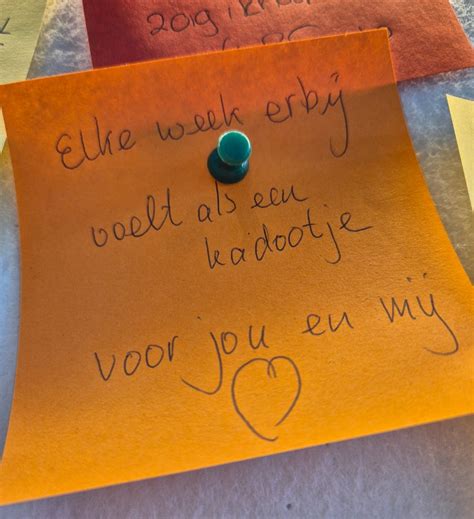 zag ik
Elke week erbij
voelt als een
kadootje
voor jou en mij